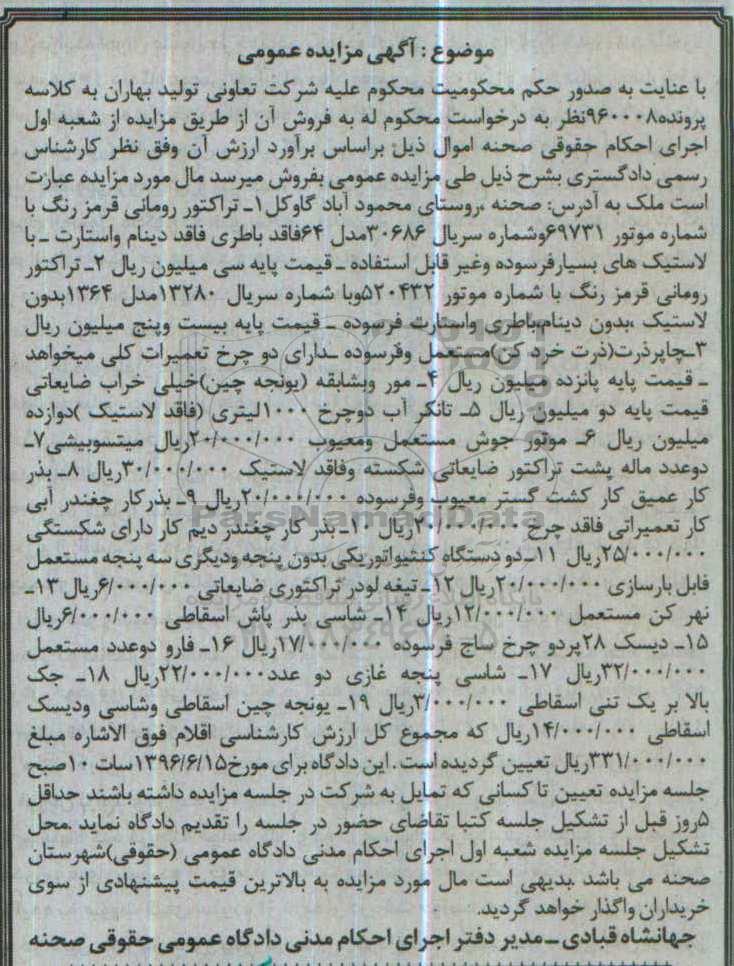 موضوع : آگهی مزایده عمومی
با عنایت به صدور حکم محکومیت محکوم علیه شرکت تعاونی تولید بهاران به کلاسه
پرونده۹۶۰۰۰۸نظر به درخواست محکوم له به فروش آن از طریق مزایده از شعبه اول
اجرای احکام حقوقی صحنه اموال ذیل براساس برآورد ارزش آن وفق نظر کارشناس
رسمی دادگستری بشرح ذیل طی مزایده عمومی بفروش میرسد مال مورد مزایده عبارت
است ملک به آدرس: صحنه ،روستای محمود آباد گاوکل۱ـ تراکتور رومانی قرمز رنگ با
شماره موتور ۶۹۷۳۱وشماره سریال ۳۰۶۸۶مدل ۶۴فاقد باطری فاقد دینام واستارت ـ با
لاستیک های بسیارفرسوده وغیر قابل استفاده ـ قیمت پایه سی میلیون ریال ۲ـ تراکتور
رومانی قرمز رنگ با شماره موتور ۵۲۰۴۳۲وبا شماره سریال ۱۳۲۸۰مدل ۱۳۶۴بدون
لاستیک ،بدون دینام،باطری واستارت فرسوده ـ قیمت پایه بیست وپنج میلیون ریال
۳ـچاپرذرت(ذرت خرد کن)مستعمل وفرسوده ـدارای دو چرخ تعمیرات کلی میخواهد
ـ قیمت پایه پانزده میلیون ریال ۴ـ مور وبشابقه (یونجه چین)خیلی خراب ضایعاتی
قیمت پایه دو میلیون ریال ۵ـ تانکر آب دوچرخ ۱۰۰۰لیتری (فاقد لاستیک )دوازده
میلیون ریال ۶ـ موتور جوش مستعمل ومعیوب ۲۰/۰۰۰/۰۰۰ریال میتسوبیشی۷ـ
دوعدد ماله پشت تراکتور ضایعاتی شکسته وفاقد لاستیک ۳۰/۰۰۰/۰۰۰ریال ۸ـ بذر
کار عمیق کار کشت گستر معیوب وفرسوده ۲۰/۰۰۰/۰۰۰ریال ۹ـ بذرکار چغندر آبی
کار تعمیراتی فاقد چرخ ۲۰/۰۰۰/۰۰۰ریال ۱۰ـ بذر کار چغندر دیم کار دارای شکستگی
۲۵/۰۰۰/۰۰۰ریال ۱۱ـ دو دستگاه کنتیواتور یکی بدون پنجه ودیگری سه پنجه مستعمل
قابل بارسازی ۲۰/۰۰۰/۰۰۰ریال ۱۲ـ تیغه لودر تراکتوری ضایعاتی ۶/۰۰۰/۰۰۰ریال ۱۳ـ
نهر کن مستعمل ۱۲/۰۰۰/۰۰۰ریال ۱۴ـ شاسی بذر پاش اسقاطی ۶/۰۰۰/۰۰۰ریال
۱۵ـ دیسک ۲۸پردو چرخ ساج فرسوده ۱۷/۰۰۰/۰۰۰ریال ۱۶ـ فارو دوعدد مستعمل
۳۲/۰۰۰/۰۰۰ریال ۱۷ـ شاسی پنجه غازی دو عدد۲۲/۰۰۰/۰۰۰ریال ۱۸ـ جک
بالا بر یک تنی اسقاطی ۳/۰۰۰/۰۰۰ریال ۱۹ـ یونجه چین اسقاطی وشاسی ودیسک
اسقاطی ۱۴/۰۰۰/۰۰۰ریال که مجموع کل ارزش کارشناسی اقلام فوق الاشاره مبلغ
۳۳۱/۰۰۰/۰۰۰ریال تعیین گردیده است . این دادگاه برای مورخ۱۳۹۶/۶/۱۵سات ۱۰صبح
جلسه مزایده تعیین تا کسانی که تمایل به شرکت در جلسه مزایده داشته باشند حداقل
۵روز قبل از تشکیل جلسه کتبا تقاضای حضور در جلسه را تقدیم دادگاه نماید .محل
تشکیل جلسه مزایده شعبه اول اجرای احکام مدنی دادگاه عمومی (حقوقی)شهرستان
صحنه می باشد .بدیهی است مال مورد مزایده به بالاترین قیمت پیشنهادی از سوی
خریداران واگذار خواهد گردید.
جهانشاه قبادی ـ مدیر دفتر اجرای احکام مدنی دادگاه عمومی حقوقی صحنه
ParsNamadData